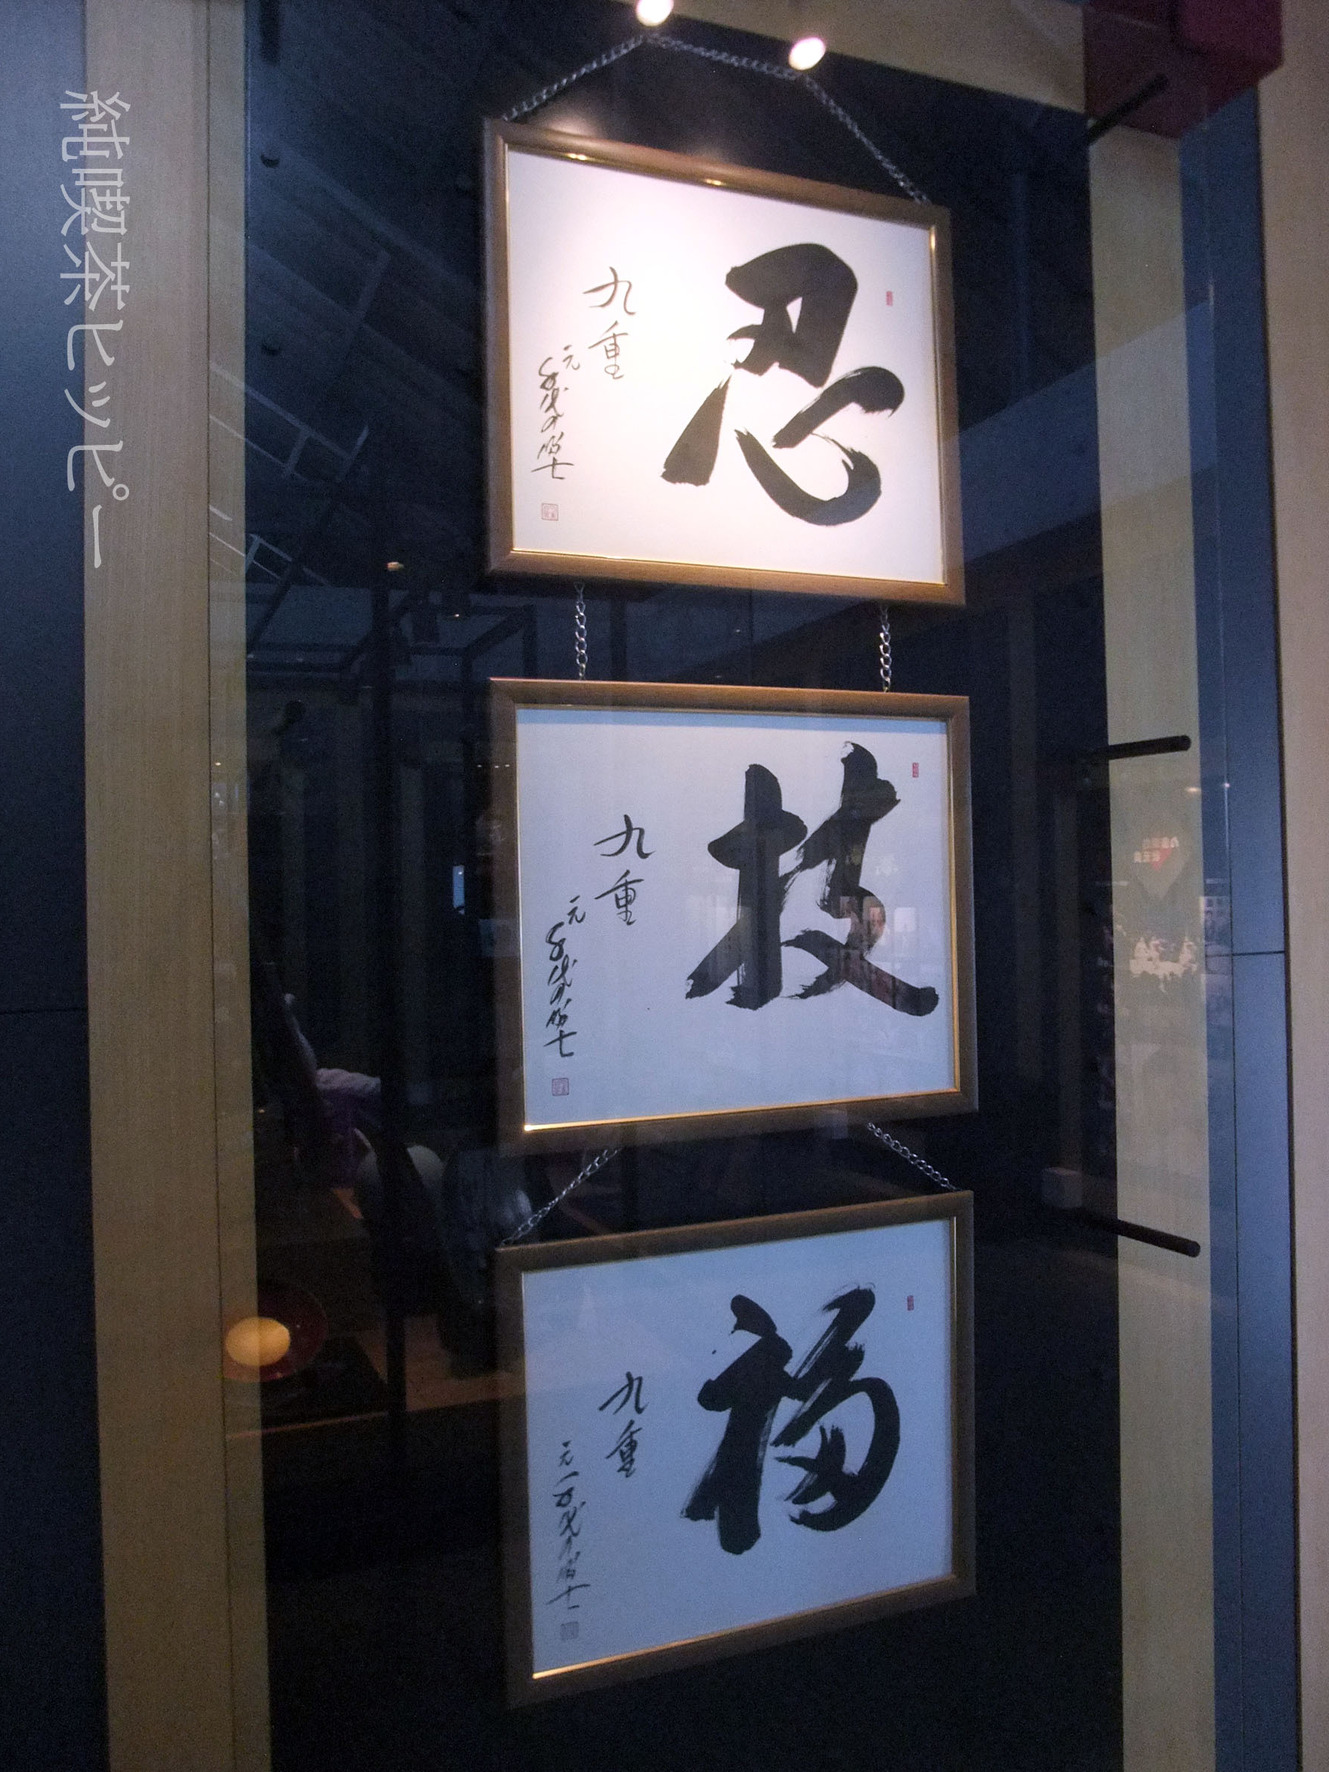 純喫茶ヒッピー
忍
九重
元千代の富士
技
九重
元千代の富士
福
九重
元千代の富士